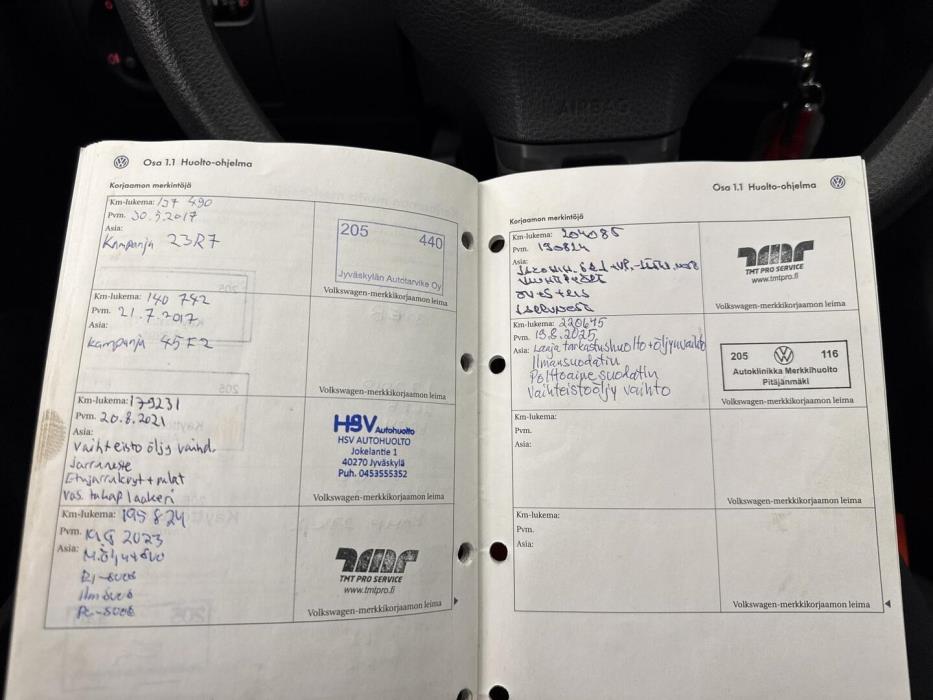 AIRBAG
Osa 1.1 Huolto-ohjelma
Korjaamon merkintöjä
Km-lukema: 137 490
Pvm. 30.3.2017
Asia:
Kampanja 23R7
205 440
Jyväskylän Autotarvike Oy
Volkswagen-merkkikorjaamon leima
Km-lukema: 140 742
Pvm. 21.7.2017
Asia:
Kampanja 45F2
Volkswagen-merkkikorjaamon leima
Km-lukema: 179231
Pvm. 20.8.2021
Asia:
Vaihteisto öljy vaihd.
Jarruneste
Etujarrulevyt + palat
vas. takap laakeri
HSV Autohuolto
HSV AUTOHUOLTO
Jokelantie 1
40270 Jyväskylä
Puh. 0453555352
Volkswagen-merkkikorjaamon leima
Km-lukema: 195824
Pvm. 2023
Asia:
TMT PRO SERVICE
www.tmtpro.fi
Volkswagen-merkkikorjaamon leima
Osa 1.1 Huolto-ohjelma
Korjaamon merkintöjä
Km-lukema: 204085
Pvm. 190824
Asia:
TMT PRO SERVICE
www.tmtpro.fi
Volkswagen-merkkikorjaamon leima
Km-lukema: 220675
Pvm. 19.8.2025
Asia: Laaja tarkastushuolto + öljynvaihto
Ilmansuodatin
Polttoainesuodatin
Vaihteistoöljy vaihto
205 116
Autoklinikka Merkkihuolto
Pitäjänmäki
Volkswagen-merkkikorjaamon leima
Km-lukema:
Pvm.
Asia:
Volkswagen-merkkikorjaamon leima
Km-lukema:
Pvm.
Asia:
Volkswagen-merkkikorjaamon leima